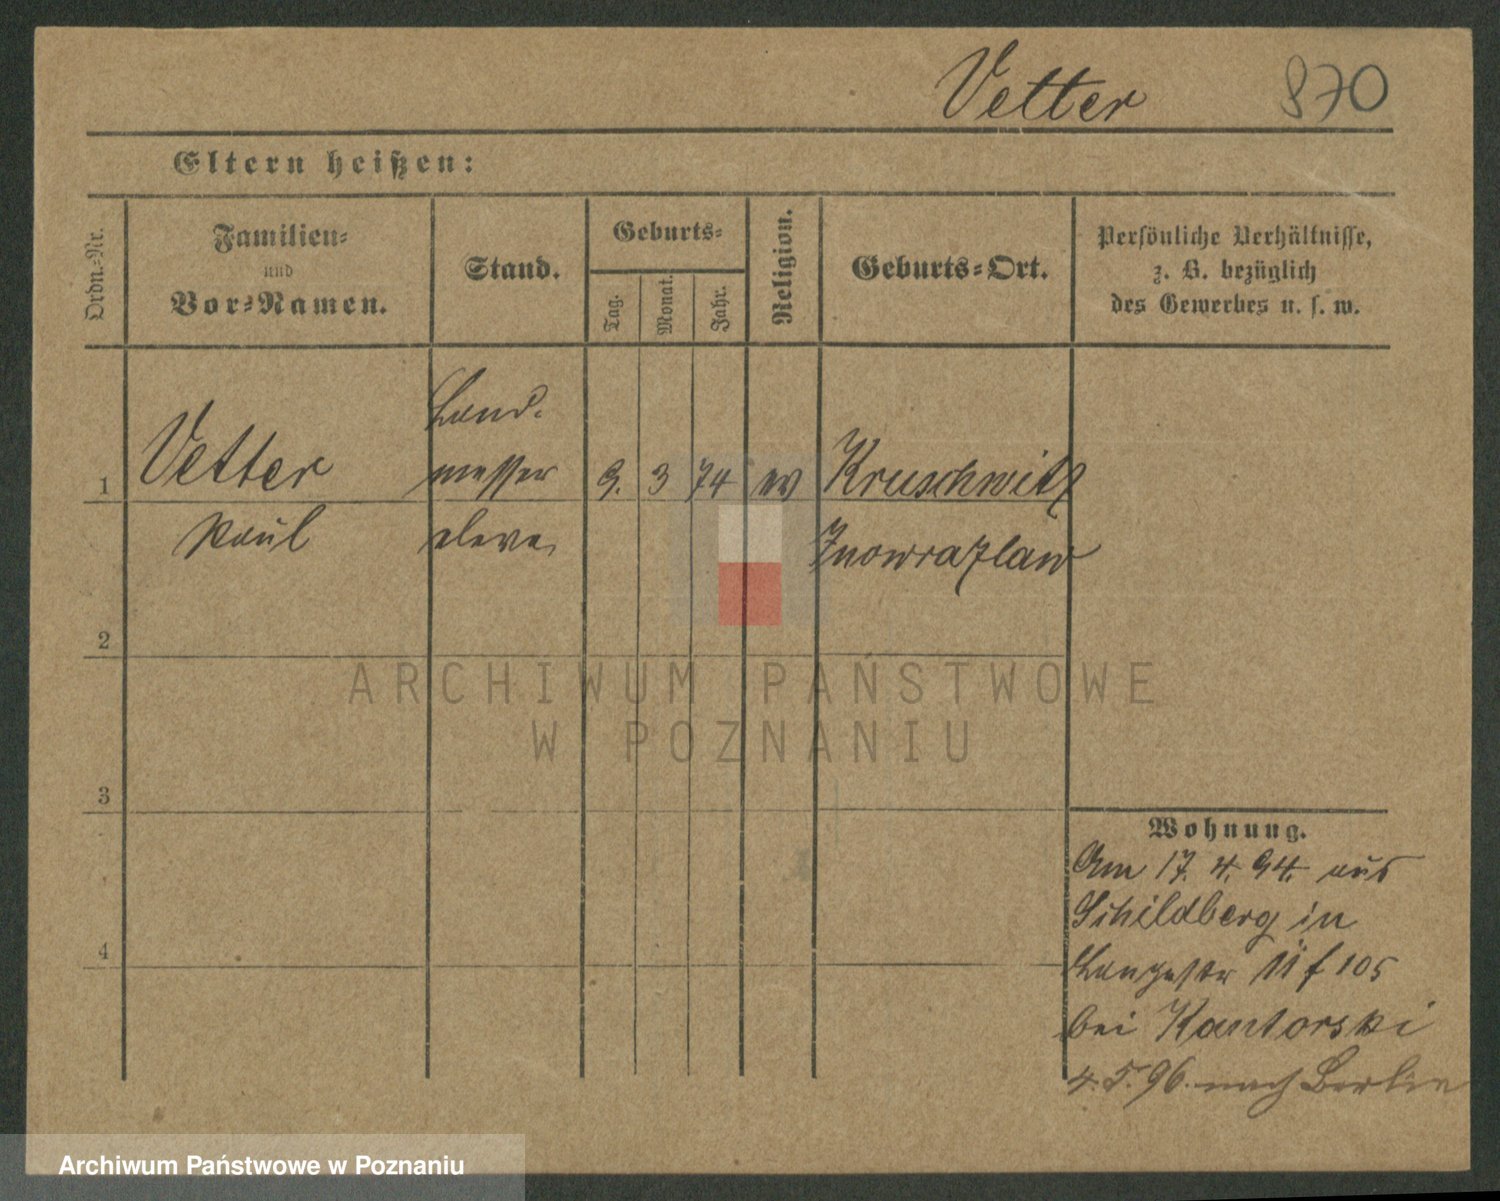 Vetter 870
Eltern heißen:
Ordn.-Nr.
Familien-
und
Vor-Namen.
Stand.
Geburts-
Tag.
Monat.
Jahr.
Religion.
Geburts-Ort.
Persönliche Verhältnisse,
z. B. bezüglich
des Gewerbes u. s. w.
Land-
1 Vetter messer 9. 3 74 Kruschwitz
Paul eleve Inowrazlaw
2
ARCHIWUM PAŃSTWOWE
W POZNANIU
3
Wohnung.
Am 17. 4. 94. aus
Schildberg in
Langestr 11 f 105
bei Kantorski
4
4. 5. 96. nach Berlin
Archiwum Państwowe w Poznaniu